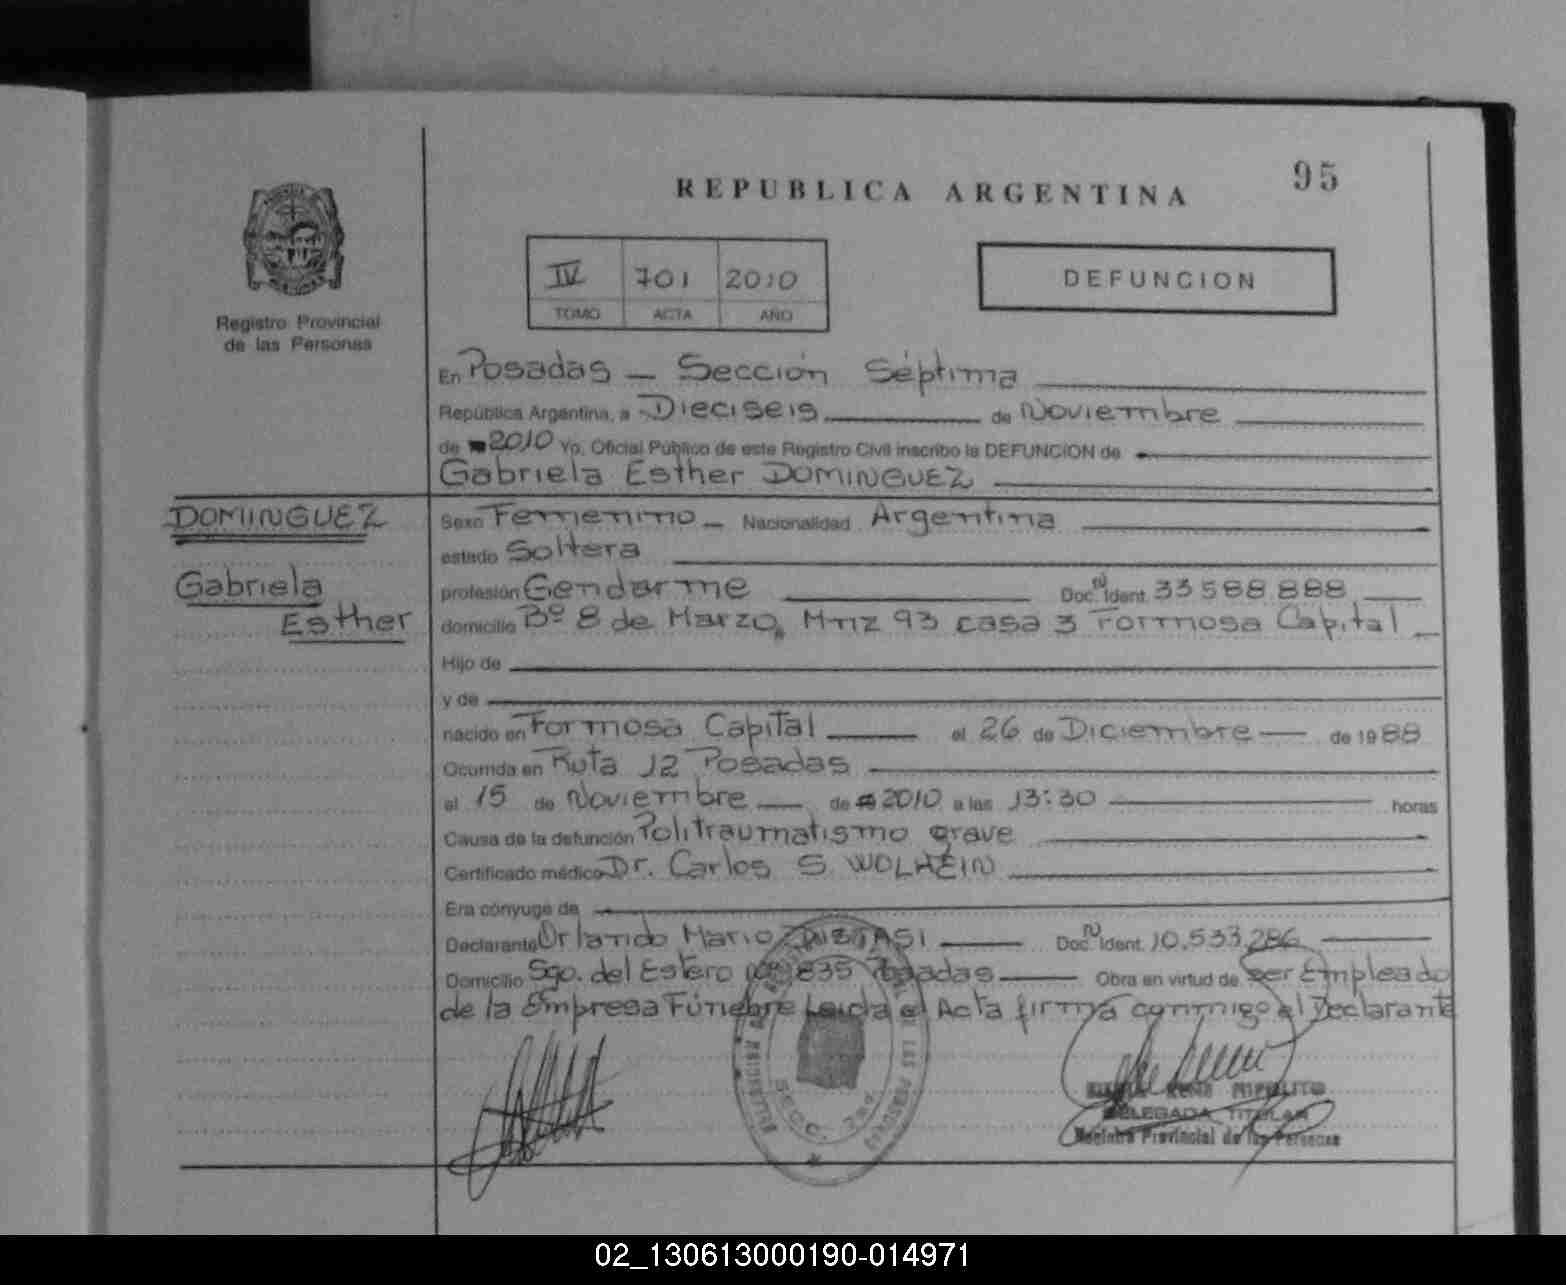 95
REPUBLICA ARGENTINA
IV 701 2010
TOMO ACTA AÑO
DEFUNCION
Registro Provincial
de las Personas
En Posadas — Sección Séptima
República Argentina, a Dieciseis de Noviembre
de 2010 Yo, Oficial Público de este Registro Civil inscribo la DEFUNCION de
Gabriela Esther DOMINGUEZ
DOMINGUEZ
Gabriela
Esther
Sexo Femenino Nacionalidad Argentina
estado Soltera
profesión Gendarme Doc. Nº Ident. 33 588 888
domicilio Bº 8 de Marzo, Mnz 93 casa 3 Formosa Capital
Hijo de
y de
nacido en Formosa Capital el 26 de Diciembre de 1988
Ocurrida en Ruta 12 Posadas
el 15 de Noviembre de 2010 a las 13:30 horas
Causa de la defunción Politraumatismo grave
Certificado médico Dr. Carlos S. WOLHEIN
Era cónyuge de
Declarante Orlando Mario Doc. Nº Ident. 10.533.286
Domicilio Sgo. del Estero Nº 1835 Posadas Obra en virtud de ser Empleado
de la Empresa Fúnebre Leida el Acta firma conmigo el Declarante
SECC. 7ad.
RENE HIPOLITO
DELEGADA TITULAR
Registro Provincial de las Personas
02_130613000190-014971